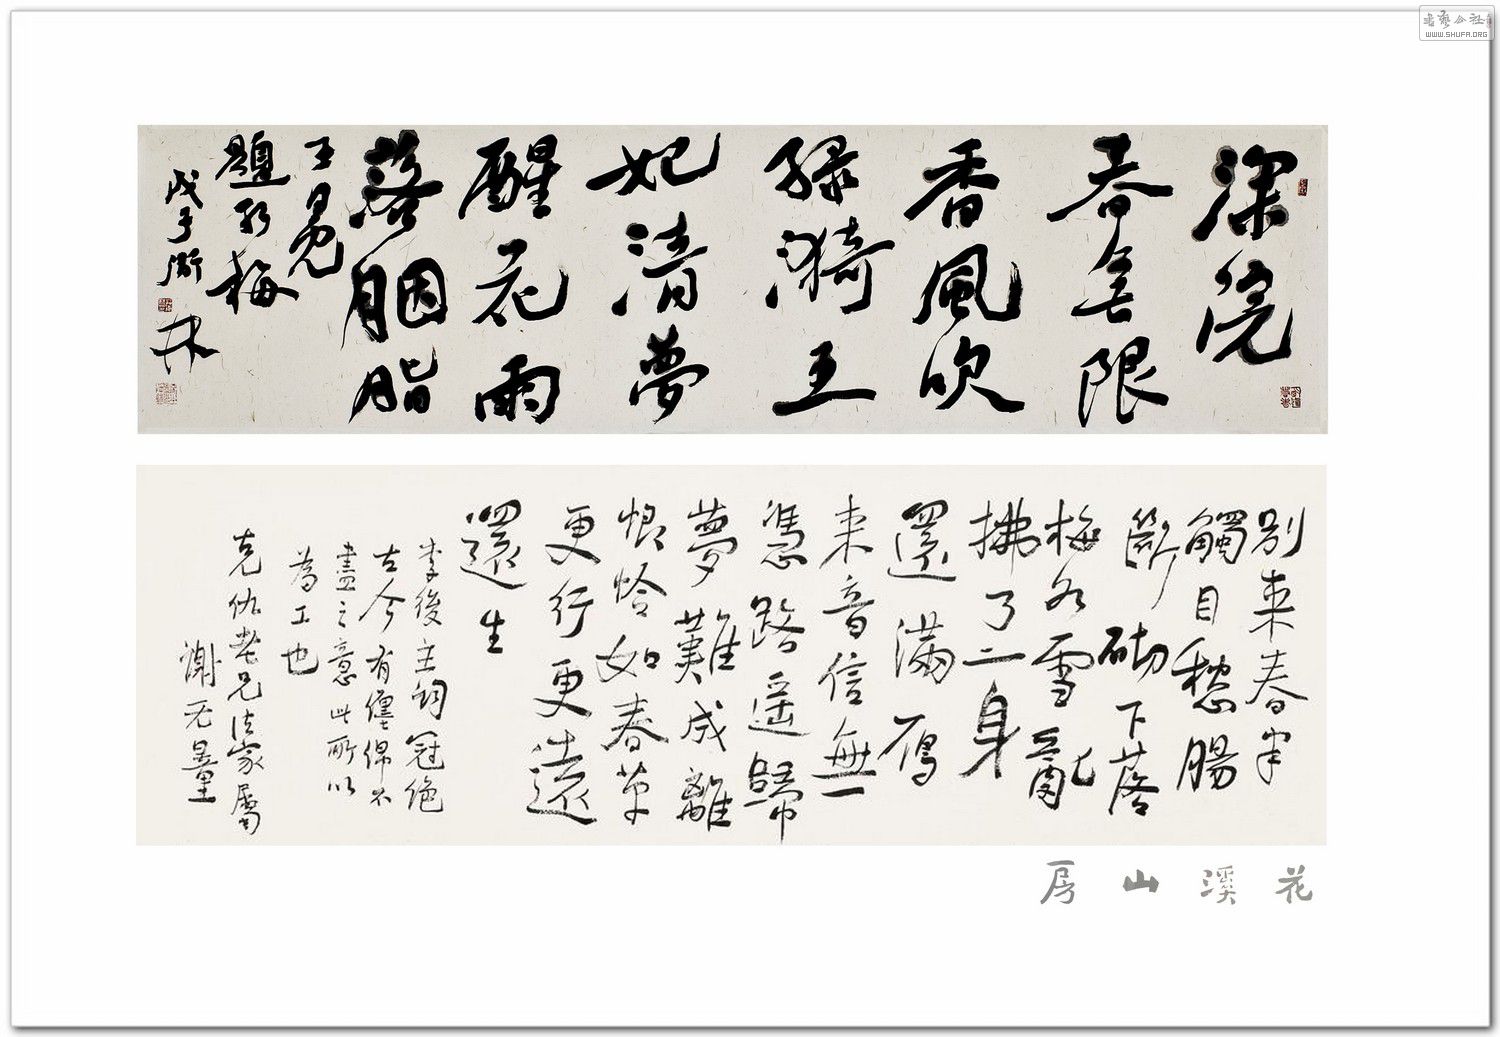 書藝公社
WWW.SHUFA.ORG
深院
春無限
香風吹
綠漪玉
妃清夢
醒花雨
落胭脂
王冕
題紅梅
戊子衛
林
別來春半
觸目愁腸
斷砌下落
梅如雪亂
拂了一身
還滿雁
來音信無
憑路遙歸
夢難成離
恨恰如春草
更行更遠
還生
李後主詞冠絕
古今有纏綿不
盡之意此所以
為工也
克仇老兄法家屬
謝无量
花溪山房